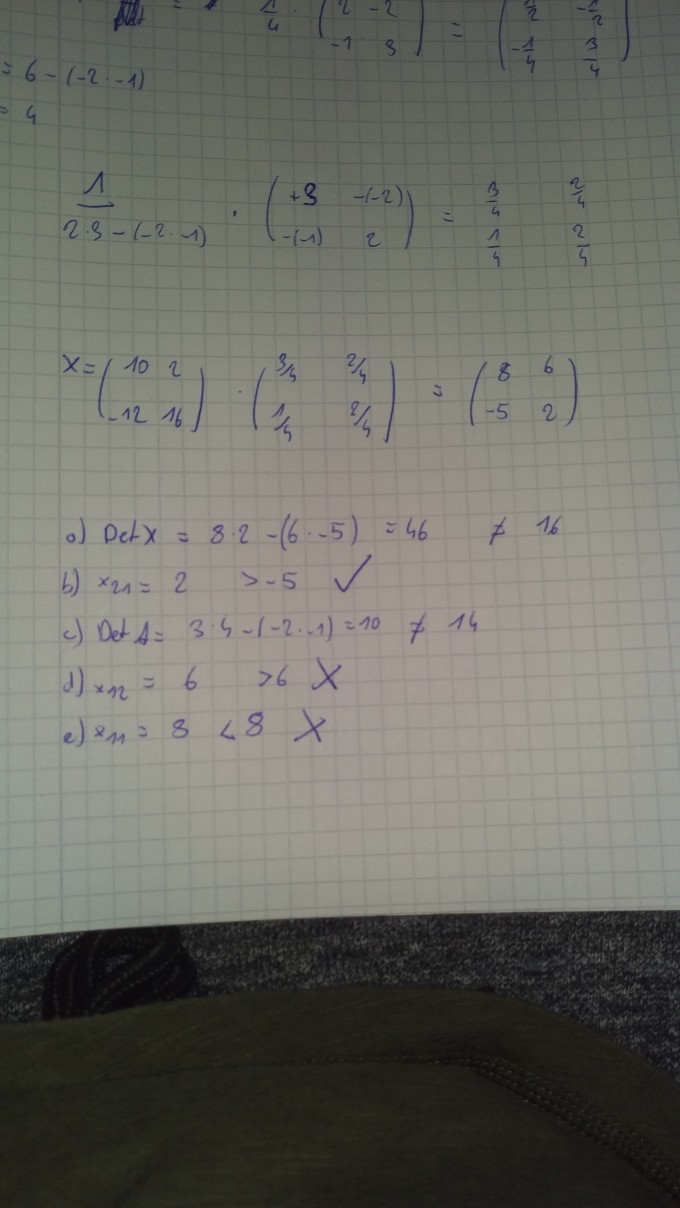 = 1/4 · ( 2 -2 ) = ( 1/2 -1/2 )
( -1 3 ) ( -1/4 3/4 )
= 6 - (-2 · -1)
= 4
1 / 2·3 - (-2 · -1) · ( +3 -(-2) ) = 3/4 2/4
( -(-1) 2 ) 1/4 2/4
X = ( 10 2 ) · ( 3/4 2/4 ) = ( 8 6 )
( -12 16 ) ( 1/4 2/4 ) ( -5 2 )
a) Det X = 8·2 - (6 · -5) = 46 ≠ 16
b) x21 = 2 > -5 ✓
c) Det A = 3·4 - (-2 · -1) = 10 ≠ 14
d) x12 = 6 > 6 X
e) x11 = 8 < 8 X